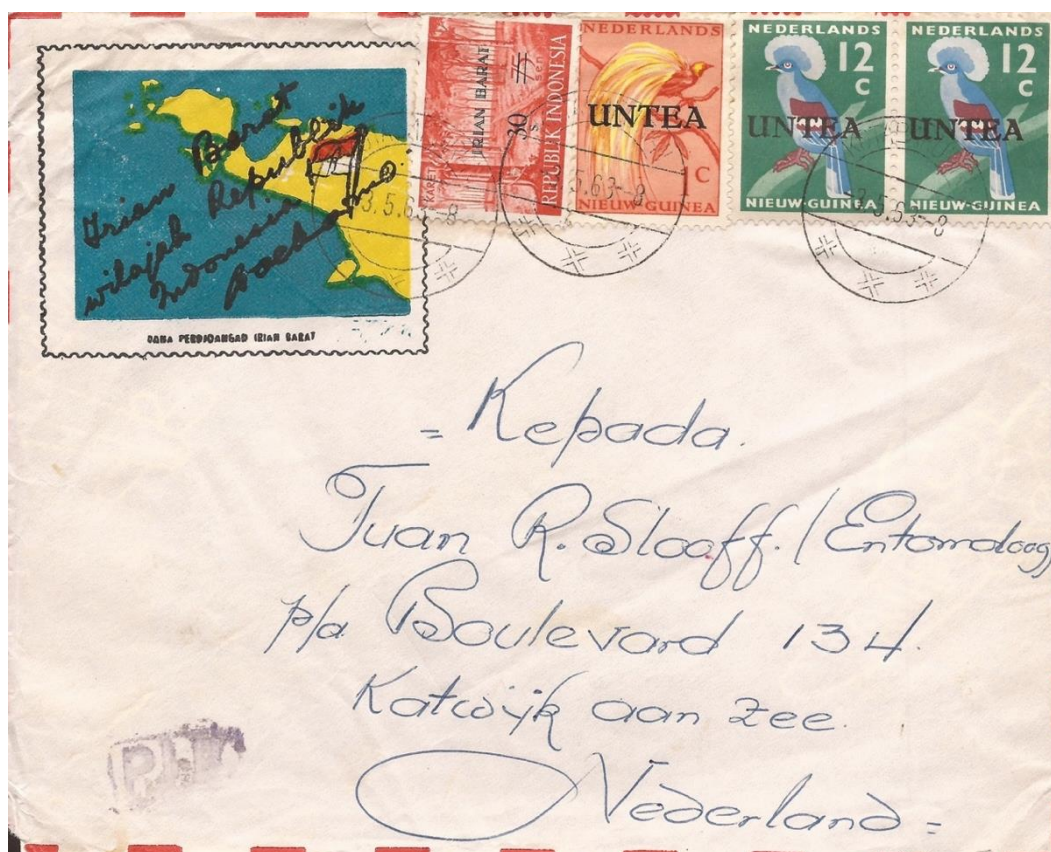 Irian Barat
wilajah Republik
Indonesia
DANA PERDJOANGAD IRIAN BARAT
IRIAN BARAT
30
s
KARET
REPUBLIK INDONESIA
NEDERLANDS
UNTEA
1 C
NIEUW-GUINEA
NEDERLANDS
12
C
UNTEA
NIEUW-GUINEA
NEDERLANDS
12
C
UNTEA
NIEUW-GUINEA
3.5.63-8
5.63-8
3.5.63-8
= Kepada.
Tuan R. Slooff. / Entomoloog
p/a Boulevard 134.
Katwijk aan Zee.
Nederland =